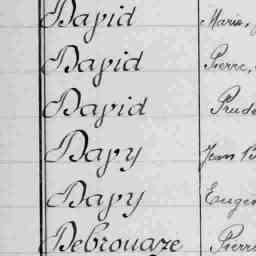 David Marie,
David Pierre,
David Prude
Davy Jean
Davy Eugen
Debrouaze Pierre